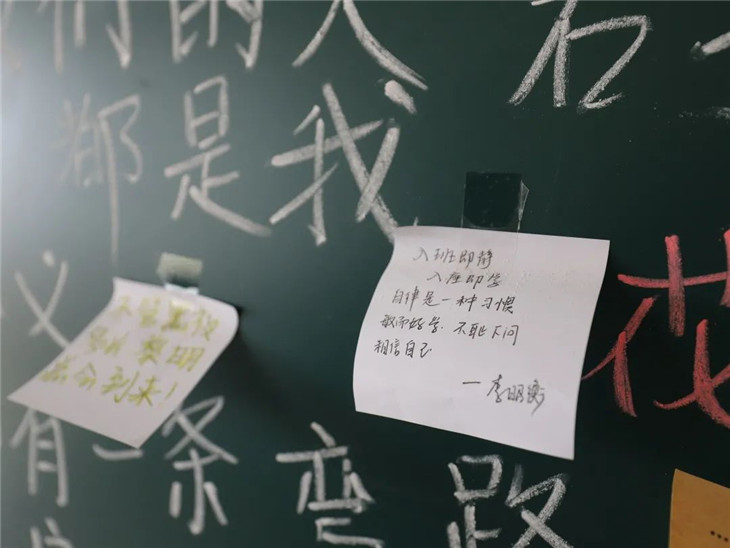 们的人
都是我
有一条弯路
花
入班即静
入座即学
自律是一种习惯
敏而好学.不耻下问
相信自己
—李明衡
黎明
都会到来!